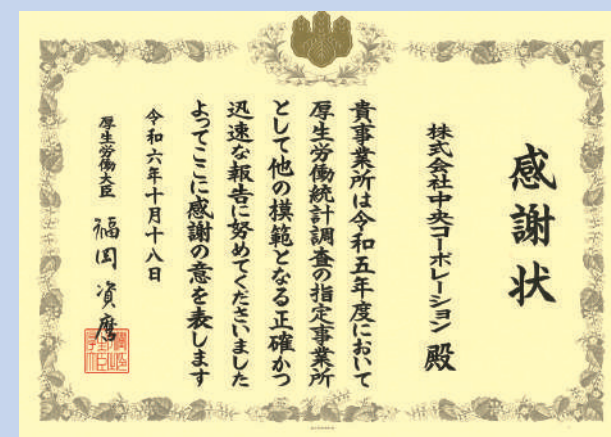 感謝状
株式会社中央コーポレーション 殿
貴事業所は令和五年度において
厚生労働統計調査の指定事業所
として他の模範となる正確かつ
迅速な報告に努めてくださいました
よってここに感謝の意を表します
令和六年十月十八日
厚生労働大臣 福岡資麿